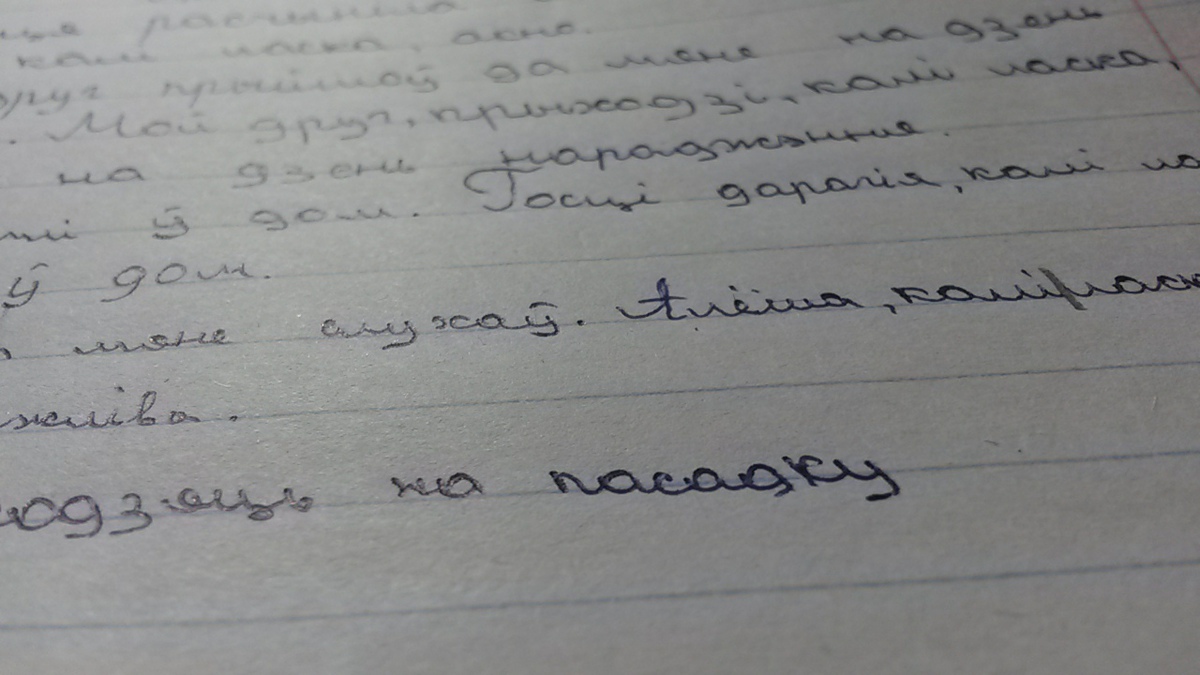 расчыніла
калі ласка, акно.
друг прыйшоў да мяне на дзень
. Мой друг, прыходзі, калі ласка,
на дзень нараджэння.
ў дом. Госці дарагія, калі ла
ў дом.
мяне слухаў. Алёша, калі ласк
жліва.
одзяць на пасадку